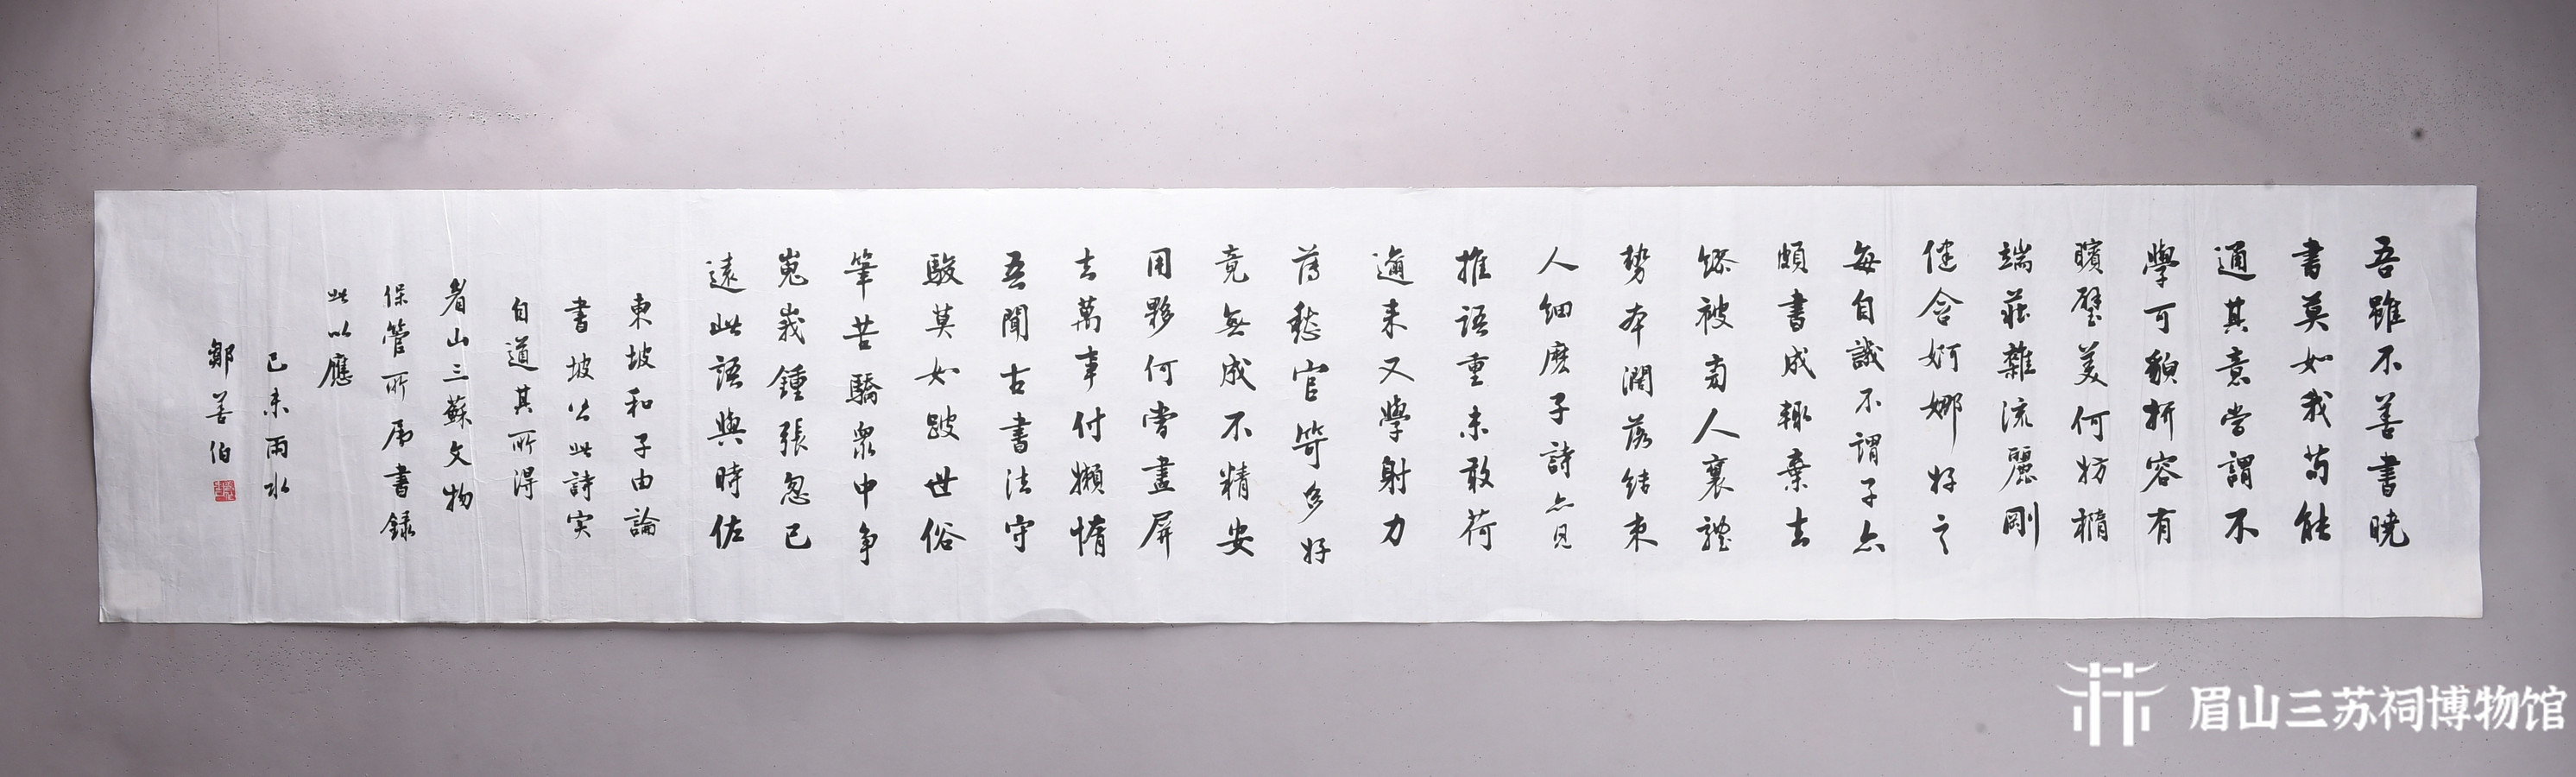 吾雖不善書曉
書莫如我苟能
通其意嘗謂不
學可貌妍容有
矉璧美何妨橢
端莊雜流麗剛
健含婀娜好之
每自譏不謂子亦
頗書成輒棄去
繆被旁人裹體
勢本闊落結束
人細麽子詩亦見
推語重未敢荷
邇来又學射力
薄愁官笴多好
竟無成不精安
用夥何當盡屏
去萬事付懶惰
吾聞古書法守
駿莫如跛世俗
筆苦驕眾中爭
嵬峩鍾張忽已
遠此語與時佐
東坡和子由論
書坡公此詩实
自道其所得
眉山三蘇文物
保管所屬書録
此以應
己未雨水
鄒善伯
眉山三苏祠博物馆